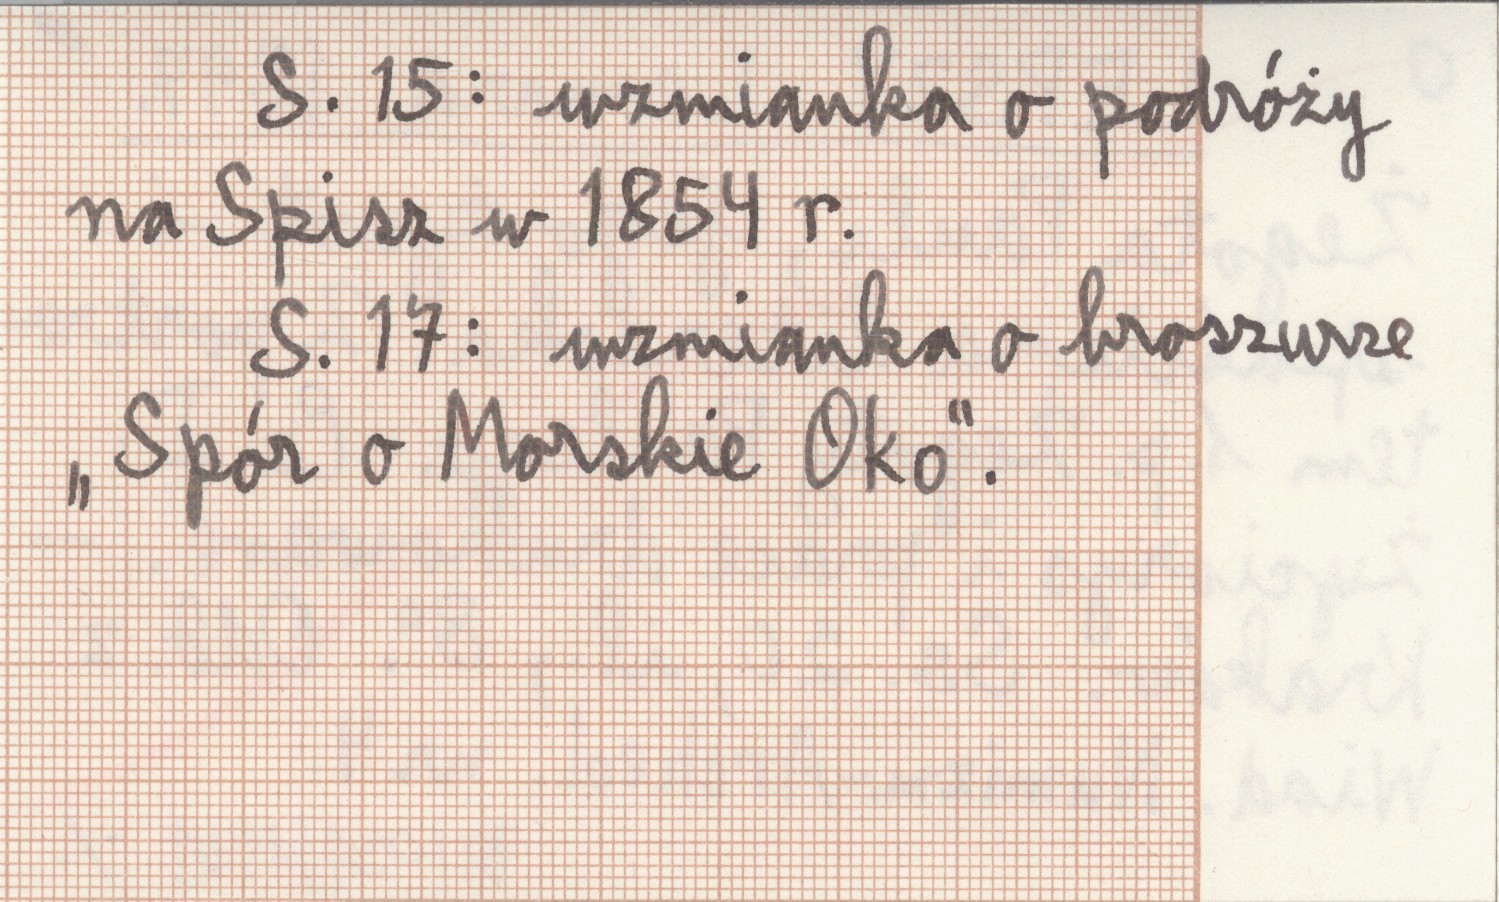 S. 15: wzmianka o podróży
na Spisz w 1854 r.
S. 17: wzmianka o broszurze
„Spór o Morskie Oko”.